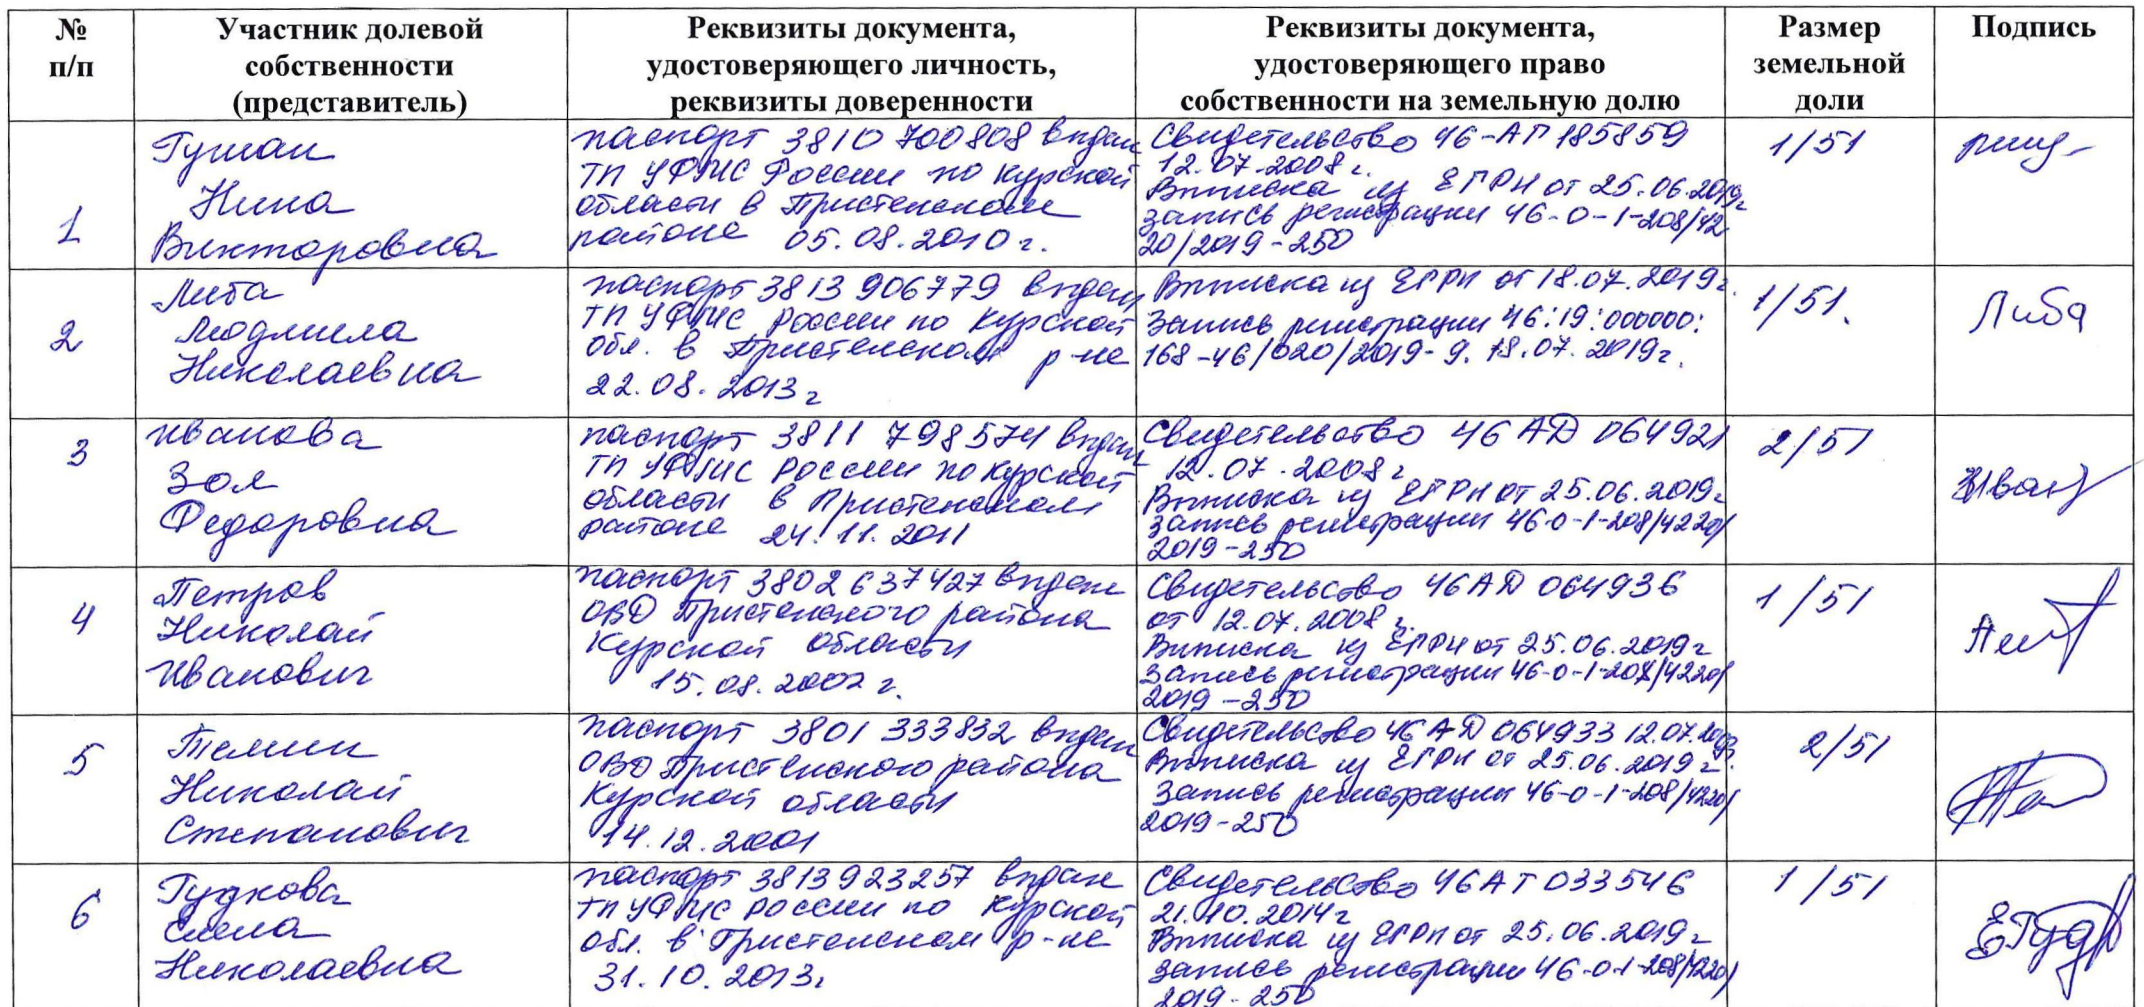 № п/п
Участник долевой собственности (представитель)
Реквизиты документа, удостоверяющего личность, реквизиты доверенности
Реквизиты документа, удостоверяющего право собственности на земельную долю
Размер земельной доли
Подпись
1
Гушан
Нина
Викторовна
паспорт 3810 700808 выдан
ТП УФМС России по Курской
области в Пристенском
районе 05.08.2010 г.
Свидетельство 46-АП 185859
12.07.2008 г.
Выписка из ЕГРН от 25.06.2019г
запись регистрации 46-0-1-208/42
20/2019-250
1/51
2
Либа
Людмила
Николаевна
паспорт 3813 906779 выдан
ТП УФМС России по Курской
обл. в Пристенском р-не
22.08.2013 г
Выписка из ЕГРН от 18.07.2019г.
Запись регистрации 46:19:000000:
168-46/020/2019-9. 18.07.2019г.
1/51.
Либа
3
Иванова
Зоя
Федоровна
паспорт 3811 798574 выдан
ТП УФМС России по Курской
области в Пристенском
районе 24.11.2011
Свидетельство 46 АД 064921
12.07.2008 г
Выписка из ЕГРН от 25.06.2019г
Запись регистрации 46-0-1-208/4220/
2019-250
2/51
Иван
4
Петров
Николай
Иванович
паспорт 3802 637427 выдан
ОВД Пристенского района
Курской области
15.08.2002 г.
Свидетельство 46АД 064936
от 12.07.2008 г.
Выписка из ЕГРН от 25.06.2019 г
Запись регистрации 46-0-1-208/4220/
2019-250
1/51
5
Темин
Николай
Степанович
паспорт 3801 333832 выдан
ОВД Пристенского района
Курской области
14.12.2001
Свидетельство 46 АД 064933 12.07.2008
Выписка из ЕГРН от 25.06.2019 г.
Запись регистрации 46-0-1-208/4220/
2019-250
2/51
6
Гудкова
Елена
Николаевна
паспорт 3813 923257 выдан
ТП УФМС России по Курской
обл. в Пристенском р-не
31.10.2013г
Свидетельство 46АТ 033546
21.10.2014г
Выписка из ЕГРН от 25.06.2019 г
Запись регистрации 46-0-1-208/4220/
2019-250
1/51
ЕГуд